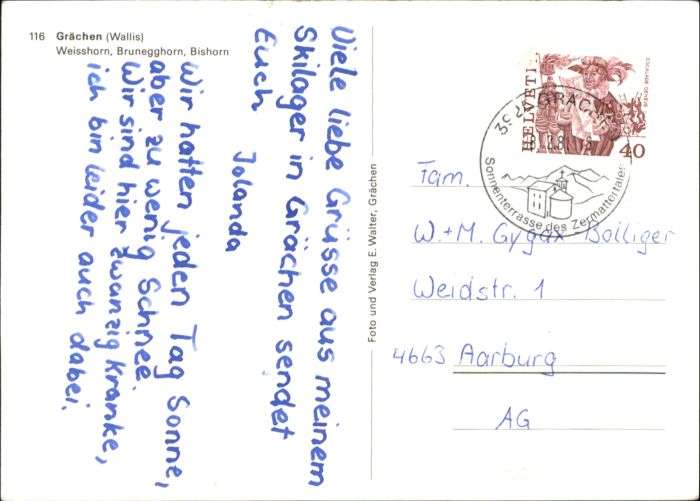 116 Grächen (Wallis)
Weisshorn, Brunegghorn, Bishorn
Viele liebe Grüsse aus meinem
Skilager in Grächen sendet
Euch
Jolanda
Wir hatten jeden Tag Sonne,
aber zu wenig Schnee
Wir sind hier zwanzig Kranke,
ich bin leider auch dabei.
Foto und Verlag E. Walter, Grächen
HELVETIA
40
GRÄCHEN
Sonnenterrasse des Zermattertales
Fam.
W.+M. Gygax-Bolliger
Weidstr. 1
4663 Aarburg
AG